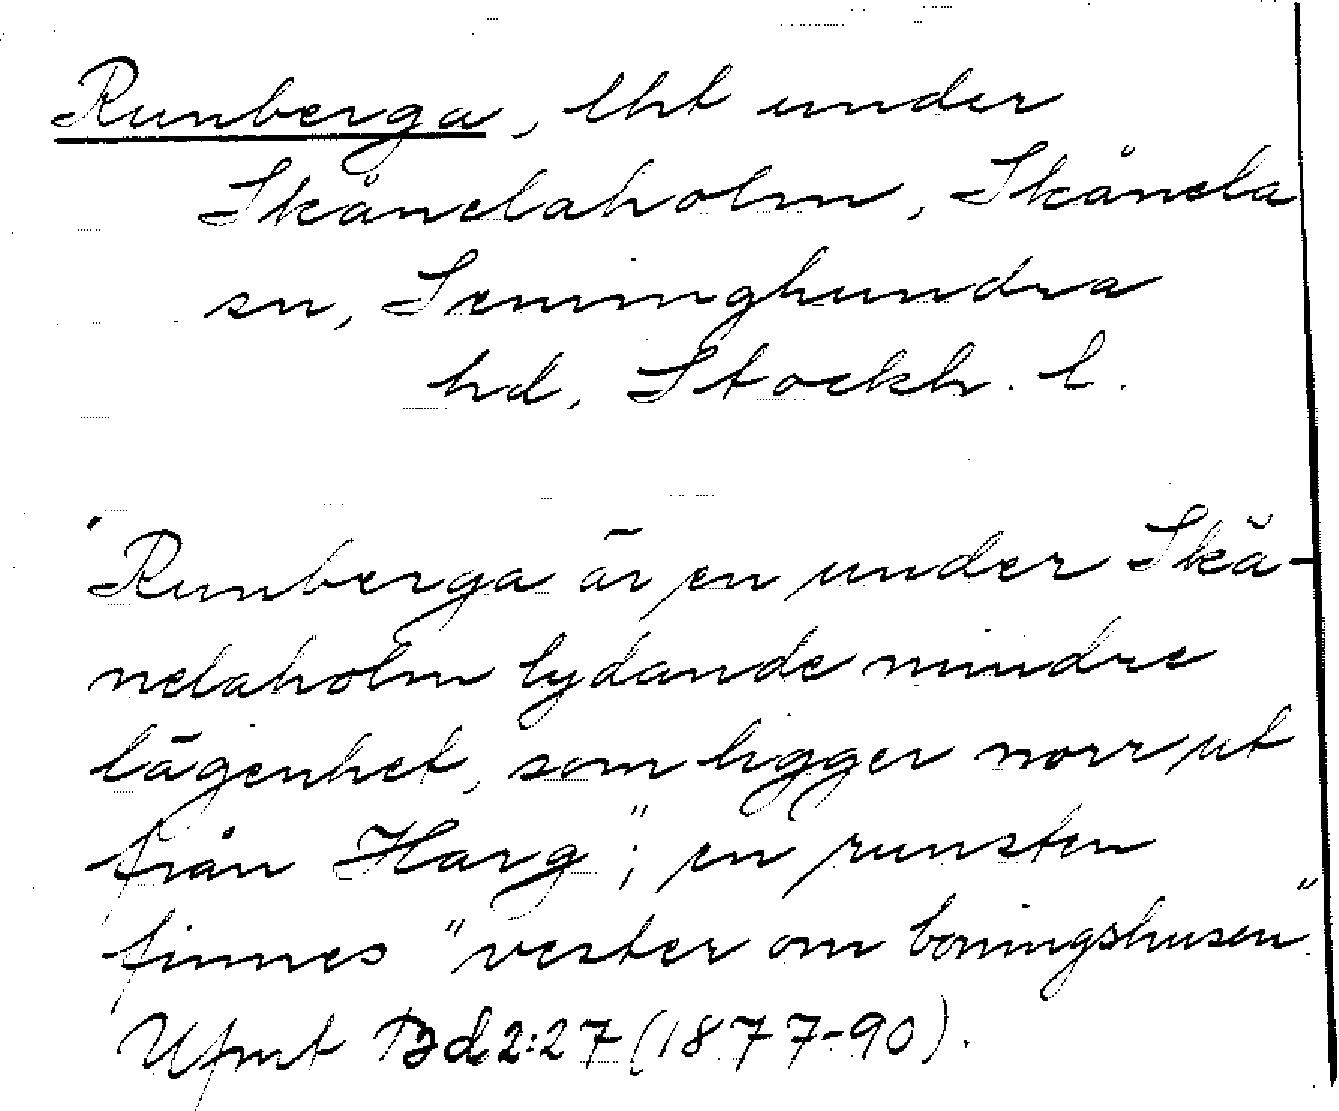 Runberga, lht under
Skånelaholm, Skånela
sn, Seminghundra
hd, Stockh. l.
"Runberga är en under Skå-
nelaholm lydande mindre
lägenhet, som ligger norr ut
från Harg"; en runsten
finnes "vester om boningshusen".
Ufmt Bd 2:27 (1877-90).